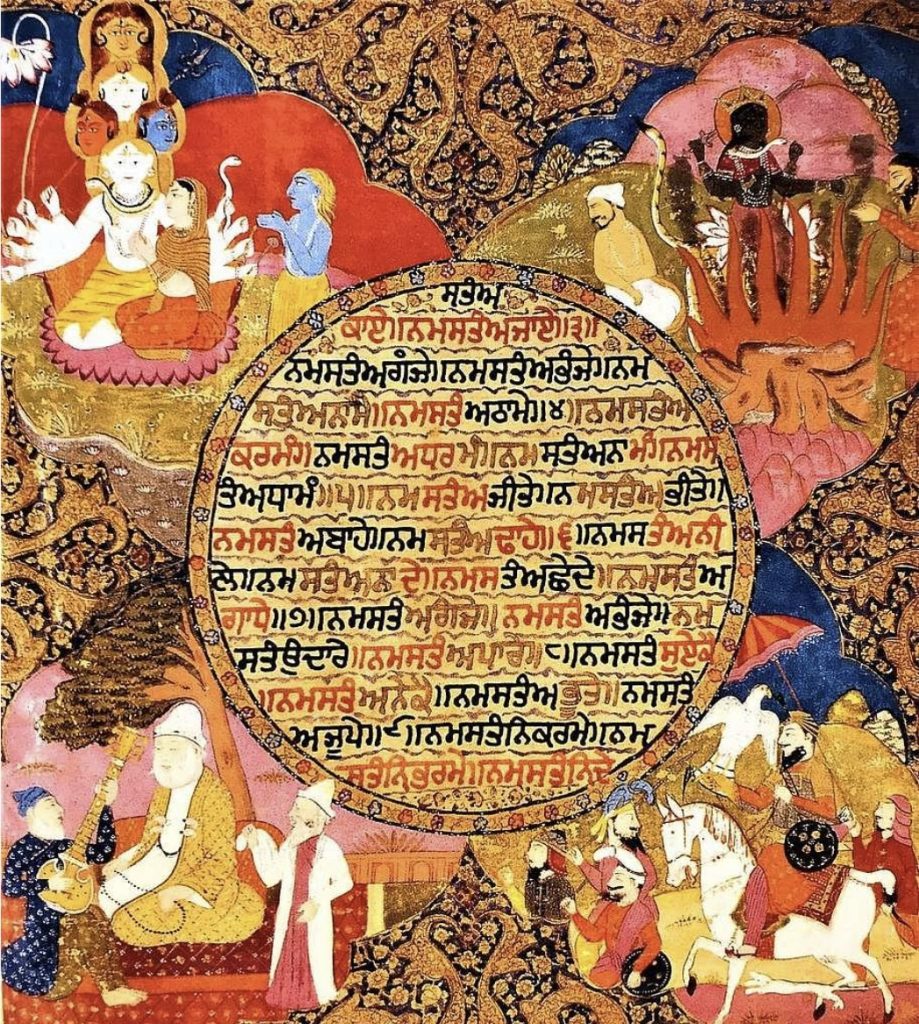 ਸਤੰਅ
ਕਾਏ॥ਨਮਸਤੰਅਜਾਏ॥੩॥
ਨਮਸਤੰਅਗੰਜੇ॥ਨਮਸਤੰਅਭੰਜੇ॥ਨਮ
ਸਤੰਅਨਾਮੇ॥ਨਮਸਤੰਅਠਾਮੇ॥੪॥ਨਮਸਤੰਅ
ਕਰਮੰ॥ਨਮਸਤੰਅਧਰਮੰ॥ਨਮਸਤੰਅਨਾਮੰ॥ਨਮਸ
ਤੰਅਧਾਮੰ॥੫॥ਨਮਸਤੰਅਜੀਤੇ॥ਨਮਸਤੰਅਭੀਤੇ॥
ਨਮਸਤੰਅਬਾਹੇ॥ਨਮਸਤੰਅਢਾਹੇ॥੬॥ਨਮਸਤੰਅਨੀ
ਲੇ॥ਨਮਸਤੰਅਨਾਦੇ॥ਨਮਸਤੰਅਛੇਦੇ॥ਨਮਸਤੰਅ
ਗਾਧੇ॥੭॥ਨਮਸਤੰਅਗੰਜੇ॥ਨਮਸਤੰਅਭੰਜੇ॥ਨਮ
ਸਤੰਉਦਾਰੇ॥ਨਮਸਤੰਅਪਾਰੇ॥੮॥ਨਮਸਤੰਸੁਏਕੈ
॥ਨਮਸਤੰਅਨੇਕੈ॥ਨਮਸਤੰਅਭੂਤੇ॥ਨਮਸਤੰ
ਅਜੂਪੇ॥੯॥ਨਮਸਤੰਨਿਕਰਮੇ॥ਨਮ
ਸਤੰਨਿਭਰਮੇ॥ਨਮਸਤੰਨਿਦੇ